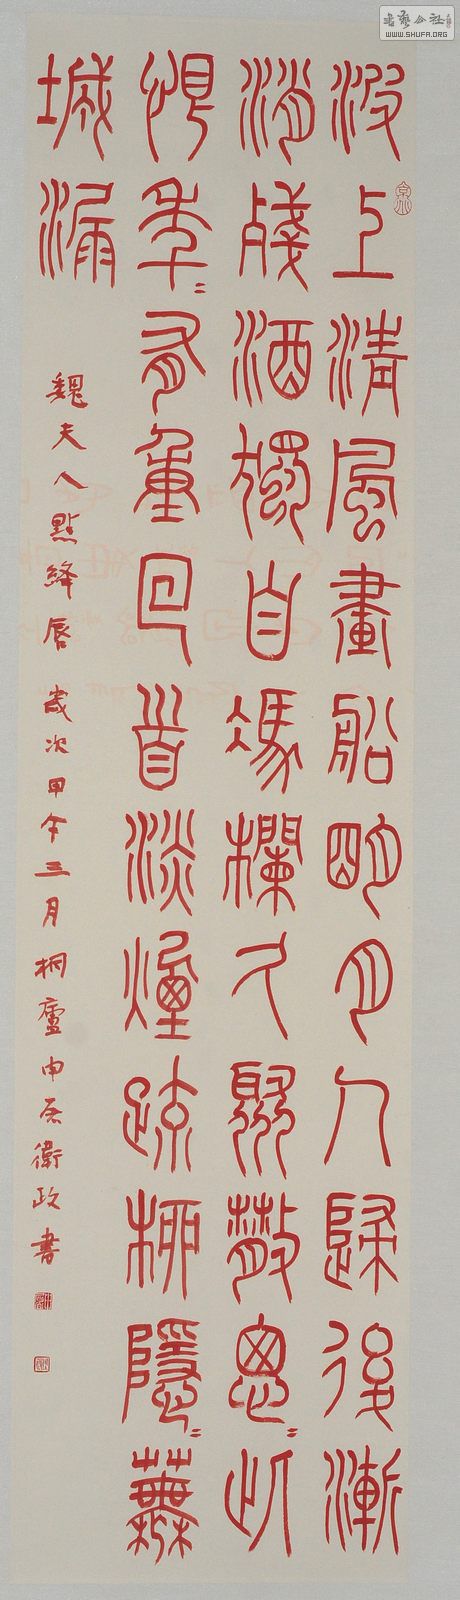 波上清風畫船明月人歸後漸
消殘酒獨自馮欄久聚散悤〻此
恨年〻有重回首淡煙疏柳隱〻蕪
城漏
魏夫人點絳唇 歲次甲午三月桐廬申屠衛政書
書藝公社
WWW.SHUFA.ORG